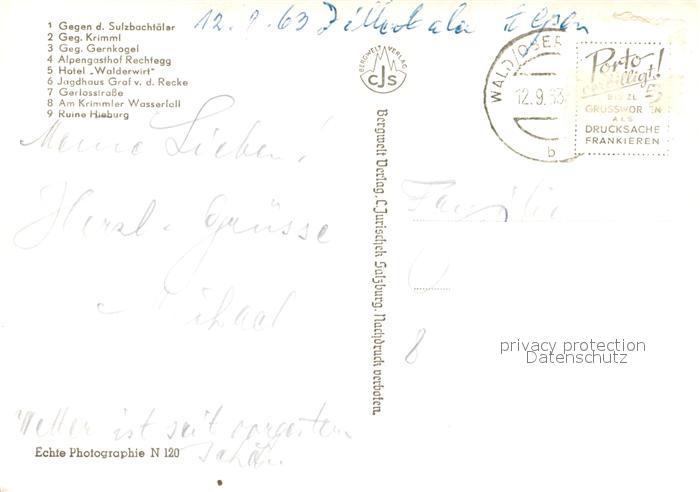 1 Gegen d. Sulzbachtäler
2 Geg. Krimml
3 Geg. Gernkogel
4 Alpengasthof Rechtegg
5 Hotel „Walderwirt"
6 Jagdhaus Graf v. d. Recke
7 Gerlosstraße
8 Am Krimmler Wasserfall
9 Ruine Hieburg
12.9.63 Zillertaler Alpen
BERGWELT VERLAG
CJS
WALD/OBER
12.9.63
b
Porto
verbilligt!
BIS ZU 5
GRUSSWORTEN
ALS
DRUCKSACHE
FRANKIEREN
Meine Lieben!
Herzl. Grüsse
Familie
8
Bergwelt Verlag, C. Jurischek Salzburg. Nachdruck verboten.
privacy protection
Datenschutz
Wetter ist seit
schön.
Echte Photographie N 120